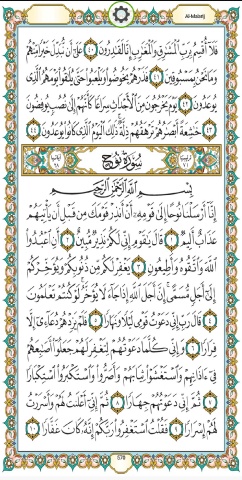 Al-Ma'arij
فَلَآ أُقْسِمُ بِرَبِّ ٱلْمَشَٰرِقِ وَٱلْمَغَٰرِبِ إِنَّا لَقَٰدِرُونَ ٤٠ عَلَىٰٓ أَن نُّبَدِّلَ خَيْرًا مِّنْهُمْ
وَمَا نَحْنُ بِمَسْبُوقِينَ ٤١ فَذَرْهُمْ يَخُوضُوا۟ وَيَلْعَبُوا۟ حَتَّىٰ يُلَٰقُوا۟ يَوْمَهُمُ ٱلَّذِى
يُوعَدُونَ ٤٢ يَوْمَ يَخْرُجُونَ مِنَ ٱلْأَجْدَاثِ سِرَاعًا كَأَنَّهُمْ إِلَىٰ نُصُبٍ يُوفِضُونَ
٤٣ خَٰشِعَةً أَبْصَٰرُهُمْ تَرْهَقُهُمْ ذِلَّةٌ ذَٰلِكَ ٱلْيَوْمُ ٱلَّذِى كَانُوا۟ يُوعَدُونَ ٤٤
سُورَةُ نُوحٍ
بِسْمِ ٱللَّهِ ٱلرَّحْمَٰنِ ٱلرَّحِيمِ
إِنَّآ أَرْسَلْنَا نُوحًا إِلَىٰ قَوْمِهِۦٓ أَنْ أَنذِرْ قَوْمَكَ مِن قَبْلِ أَن يَأْتِيَهُمْ
عَذَابٌ أَلِيمٌ ١ قَالَ يَٰقَوْمِ إِنِّى لَكُمْ نَذِيرٌ مُّبِينٌ ٢ أَنِ ٱعْبُدُوا۟
ٱللَّهَ وَٱتَّقُوهُ وَأَطِيعُونِ ٣ يَغْفِرْ لَكُم مِّن ذُنُوبِكُمْ وَيُؤَخِّرْكُمْ
إِلَىٰٓ أَجَلٍ مُّسَمًّى إِنَّ أَجَلَ ٱللَّهِ إِذَا جَآءَ لَا يُؤَخَّرُ لَوْ كُنتُمْ تَعْلَمُونَ
٤ قَالَ رَبِّ إِنِّى دَعَوْتُ قَوْمِى لَيْلًا وَنَهَارًا ٥ فَلَمْ يَزِدْهُمْ دُعَآءِىٓ إِلَّا
فِرَارًا ٦ وَإِنِّى كُلَّمَا دَعَوْتُهُمْ لِتَغْفِرَ لَهُمْ جَعَلُوٓا۟ أَصَٰبِعَهُمْ
فِىٓ ءَاذَانِهِمْ وَٱسْتَغْشَوْا۟ ثِيَابَهُمْ وَأَصَرُّوا۟ وَٱسْتَكْبَرُوا۟ ٱسْتِكْبَارًا
٧ ثُمَّ إِنِّى دَعَوْتُهُمْ جِهَارًا ٨ ثُمَّ إِنِّىٓ أَعْلَنتُ لَهُمْ وَأَسْرَرْتُ
لَهُمْ إِسْرَارًا ٩ فَقُلْتُ ٱسْتَغْفِرُوا۟ رَبَّكُمْ إِنَّهُۥ كَانَ غَفَّارًا ١٠
570